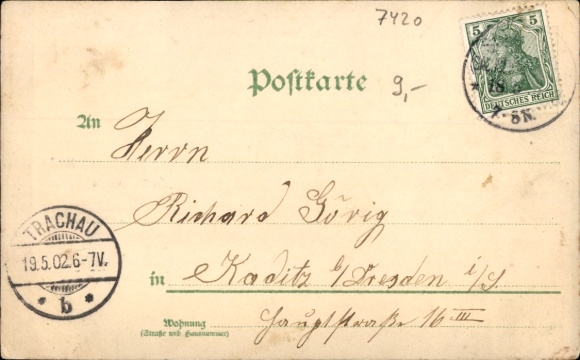 7420
5 5
DEUTSCHES REICH
18
7-8N.
Postkarte
9,-
An Herrn
Richard Görig
TRACHAU
19.5.02.6-7V.
* b *
in Kaditz b/Dresden i/S.
Wohnung
(Straße und Hausnummer)
Hauptstraße 16 III